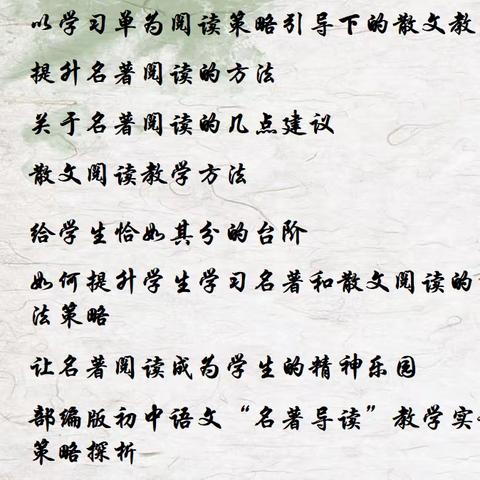 以学习单为阅读策略引导下的散文教
提升名著阅读的方法
关于名著阅读的几点建议
散文阅读教学方法
给学生恰如其分的台阶
如何提升学生学习名著和散文阅读的
法策略
让名著阅读成为学生的精神乐园
部编版初中语文“名著导读”教学实
策略探析